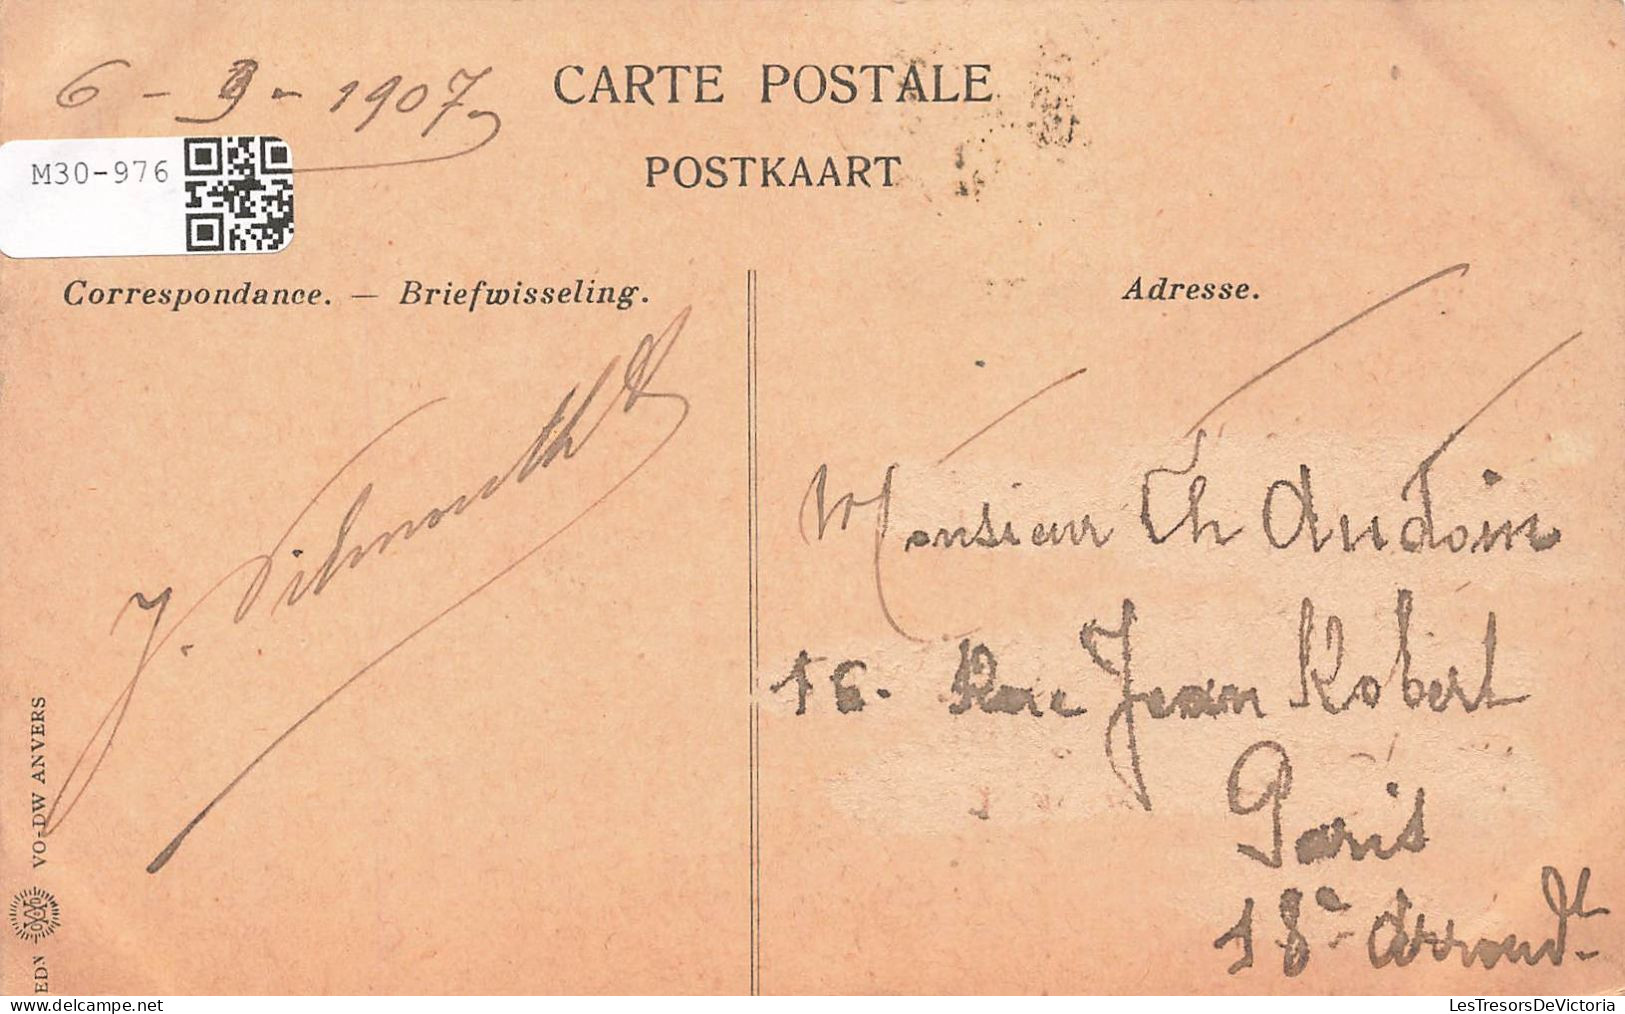 6 - 9 - 1907
CARTE POSTALE
POSTKAART
M30-976
Correspondance. — Briefwisseling.
Adresse.
J.
Monsieur Ch Audoin
16. Rue Jean Robert
Paris
18e Arrondt.
EDN VO-DW ANVERS
LesTresorsDeVictoria